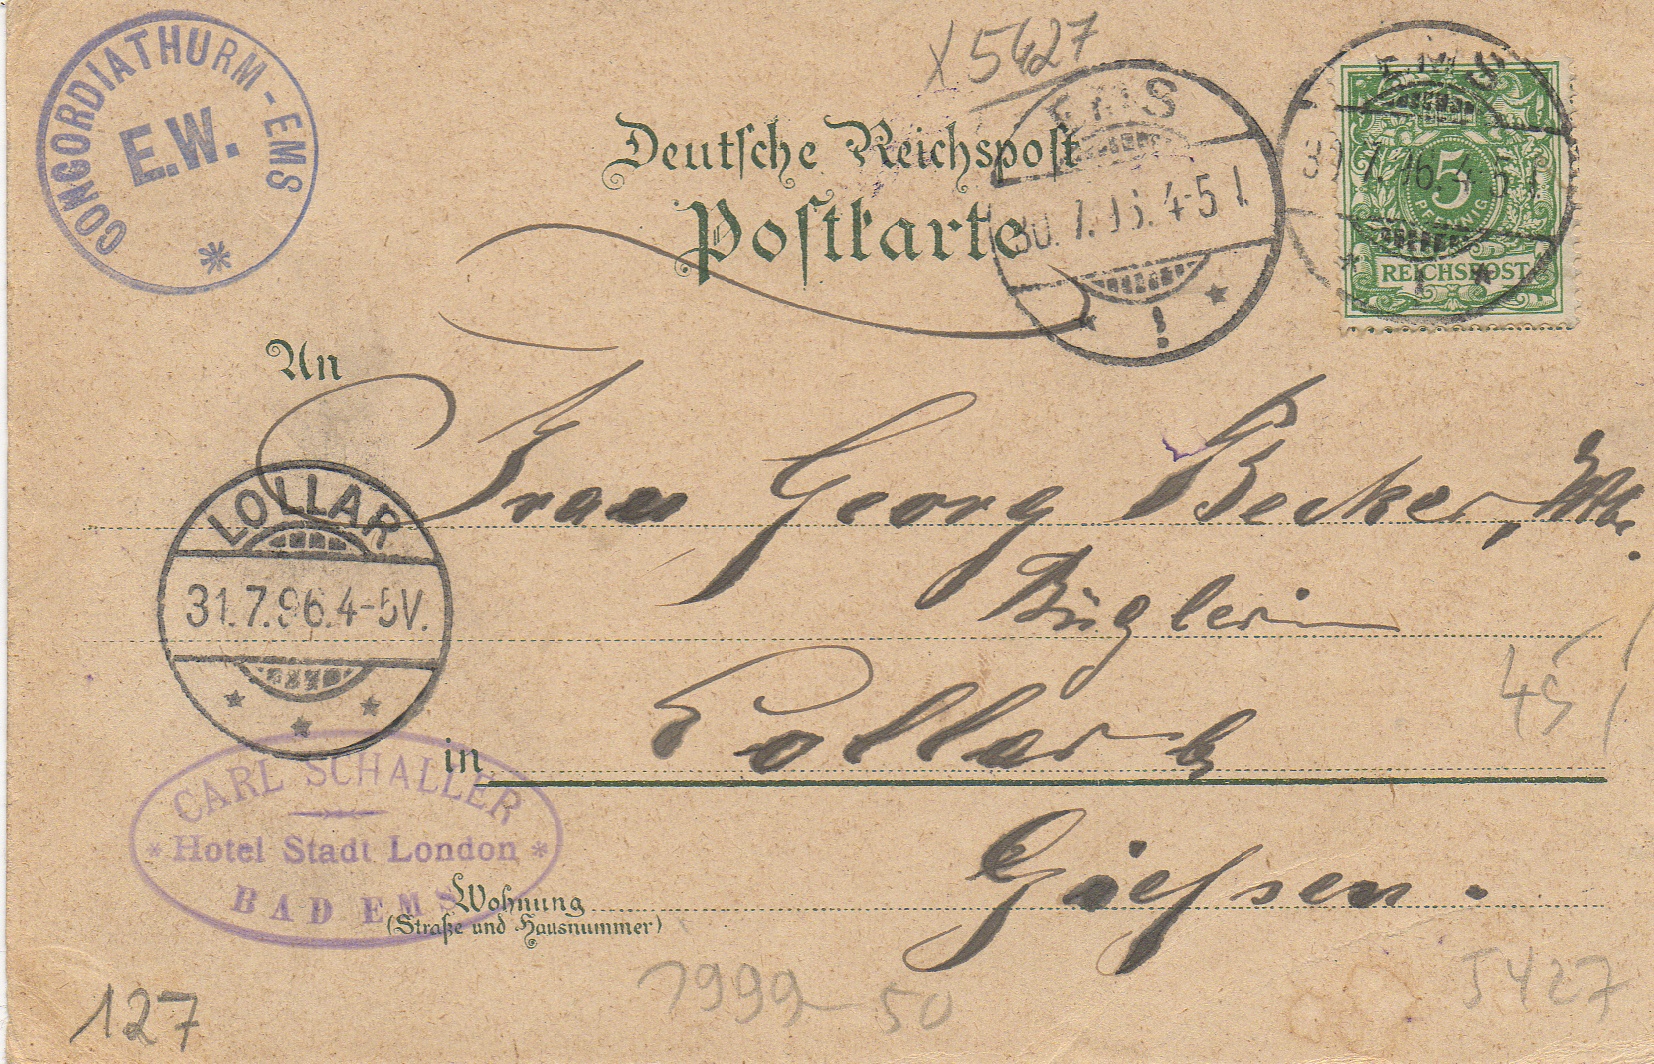 CONCORDIATHURM-EMS
E.W.
X5427
Deutsche Reichspost
Postkarte
EMS
30.7.96.4-5 N.
EMS
30.7.96.4-5 N.
5
PFENNIG
REICHSPOST
An
Frau Georg Becker,
Büglerin
Lollar b
Giessen.
LOLLAR
31.7.96.4-5V.
in
CARL SCHALLER
* Hotel Stadt London *
BAD EMS
Wohnung
(Straße und Hausnummer)
45
127
1999-50
5427